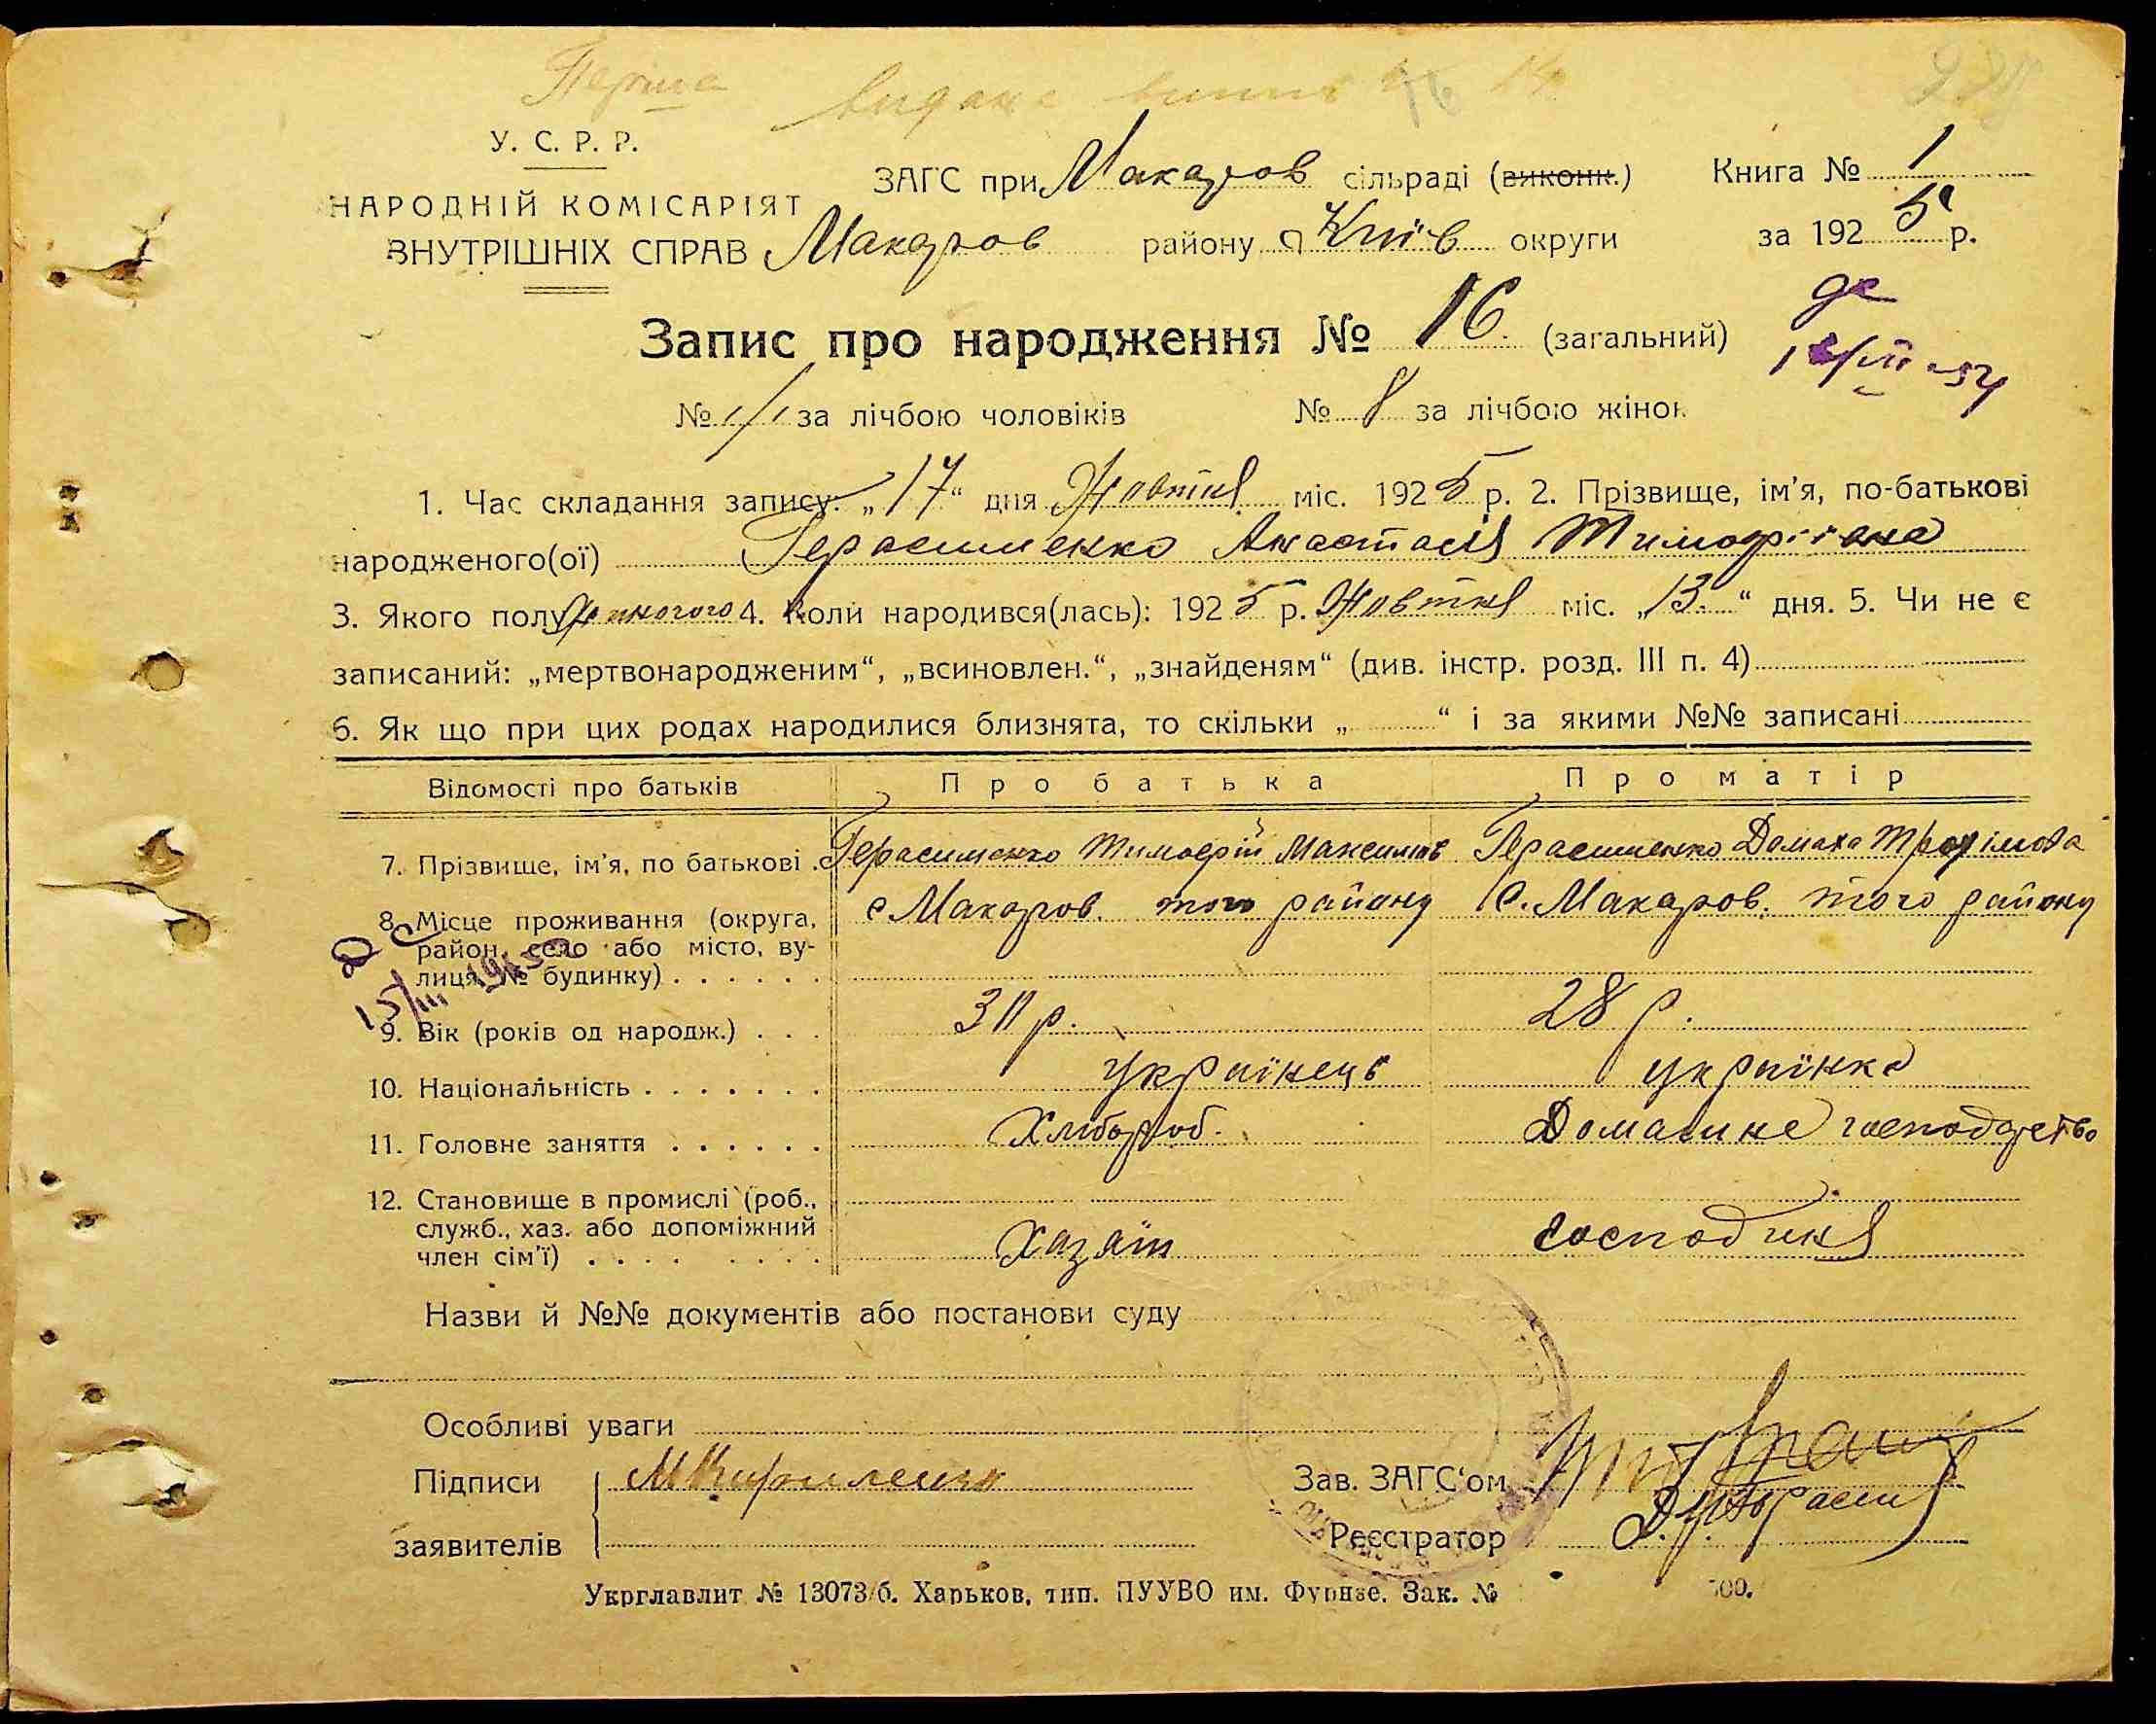 У. С. Р. Р.
НАРОДНІЙ КОМІСАРІЯТ
ВНУТРІШНІХ СПРАВ
ЗАГС при Макаров сільраді (виконк.)
Макаров району Київ округи
Книга № 1
за 1925 р.
Запис про народження № 16. (загальний)
№ за лічбою чоловіків № 8 за лічбою жінок
1. Час складання запису: „17“ дня Жовтня міс. 1925 р. 2. Прізвище, ім'я, по-батькові
народженого(ої) Герасименко Анастасія
3. Якого полу жиночого 4. Коли народився(лась): 1925 р. Жовтня міс. „13.“ дня. 5. Чи не є
записаний: „мертвонародженим“, „всиновлен.“, „знайденям“ (див. інстр. розд. III п. 4)
6. Як що при цих родах народилися близнята, то скільки „ “ і за якими №№ записані
Відомості про батьків Про батька Про матір
7. Прізвище, ім'я, по батькові . Герасименко Тимофій Максимов Герасименко Домаха Трофімова
8. Місце проживання (округа, с Макаров. того району с. Макаров. того району
район, село або місто, ву-
лиця, № будинку) . . . . . .
9. Вік (років од народж.) . . . р. 28 р.
10. Національність . . . . . . . українець українка
11. Головне заняття . . . . . . Хлібороб. Домашнє господарство
12. Становище в промислі (роб.,
служб., хаз. або допоміжний Хазяїн господиня
член сім'ї) . . . . . . . .
Назви й №№ документів або постанови суду
Особливі уваги
Підписи Зав. ЗАГС'ом
заявителів Реєстратор
Укрглавлит № 13073/б. Харьков, тип. ПУУВО им. Фрунзе. Зак. №